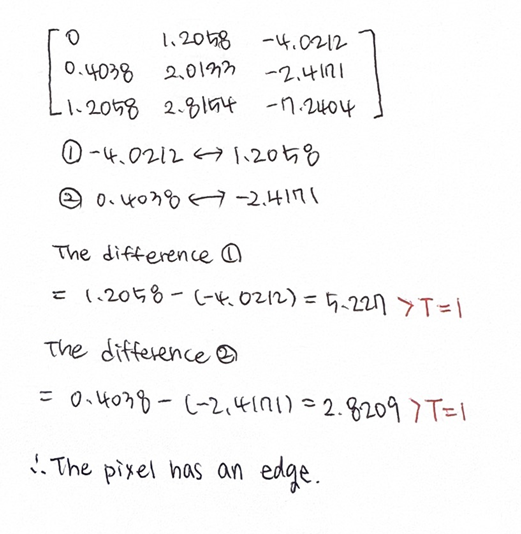 0 1.2058 -4.0212
0.4038 2.0133 -2.4171
1.2058 2.8154 -7.2404
① -4.0212 ↔ 1.2058
② 0.4038 ↔ -2.4171
The difference ①
= 1.2058 - (-4.0212) = 5.227 > T=1
The difference ②
= 0.4038 - (-2.4171) = 2.8209 > T=1
∴ The pixel has an edge.